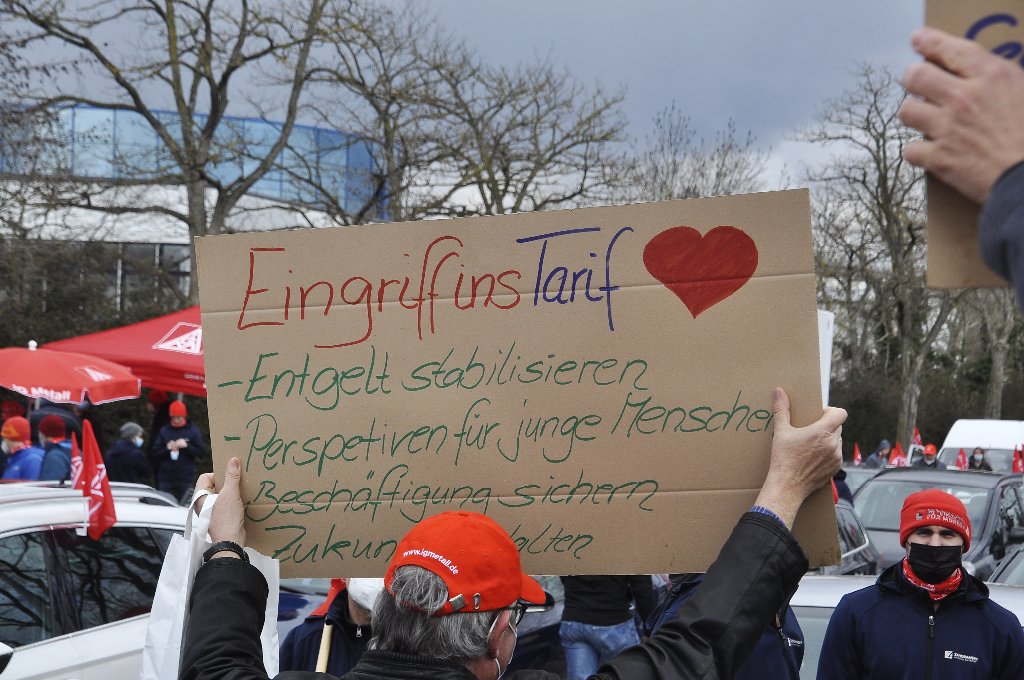 Eingriff ins Tarif
- Entgelt stabilisieren
- Perspetiven für junge Menschen
Beschäftigung sichern
www.igmetall.de
IG Metall